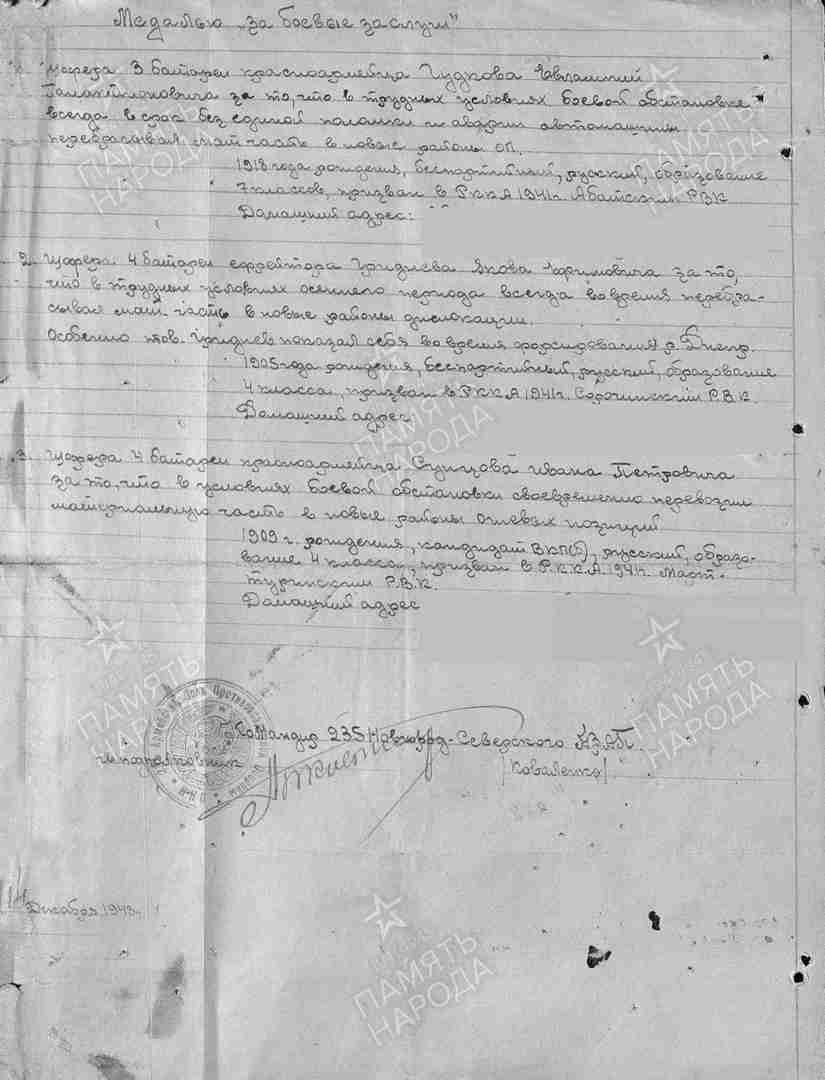 Медалью „за боевые заслуги"
1. шофера 3 батареи красноармейца Гудкова Евлампий
Галактионовича за то, что в трудных условиях боевой обстановке
всегда в срок без единой поломки и аварии автомашины
перебрасывал мат часть в новые районы ОП.
1918 года рождения, беспартийный, русский, образование
7 классов, призван в РККА 1941г. Абатским РВК
Домашний адрес:
2. шофера 4 батареи ефрейтора Гриднева Якова Ефимовича за то,
что в трудных условиях осеннего периода всегда во время перебра-
сывал мат. часть в новые районы дислокации.
Особенно тов. Гриднев показал себя во время форсирования р. Днепр.
1905 года рождения, беспартийный, русский, образование
4 класса, призван в РККА 1941г. Сорочинским Р.В.К.
Домашний адрес
3. шофера 4 батареи красноармейца Сунцова Ивана Петровича
за то, что в условиях боевой обстановки своевременно перевозил
материальную часть в новые районы огневых позиций
1909 г. рождения, кандидат ВКП(б), русский, образо-
вание 4 класса, призван в Р.К.К.А. 1941г. Мари-
Турекским Р.В.К.
Домашний адрес
Командир 235 Новгород-Северского АЗАП.
подполковник
/Коваленко/
14 Декабря 1943г.
ПАМЯТЬ
НАРОДА